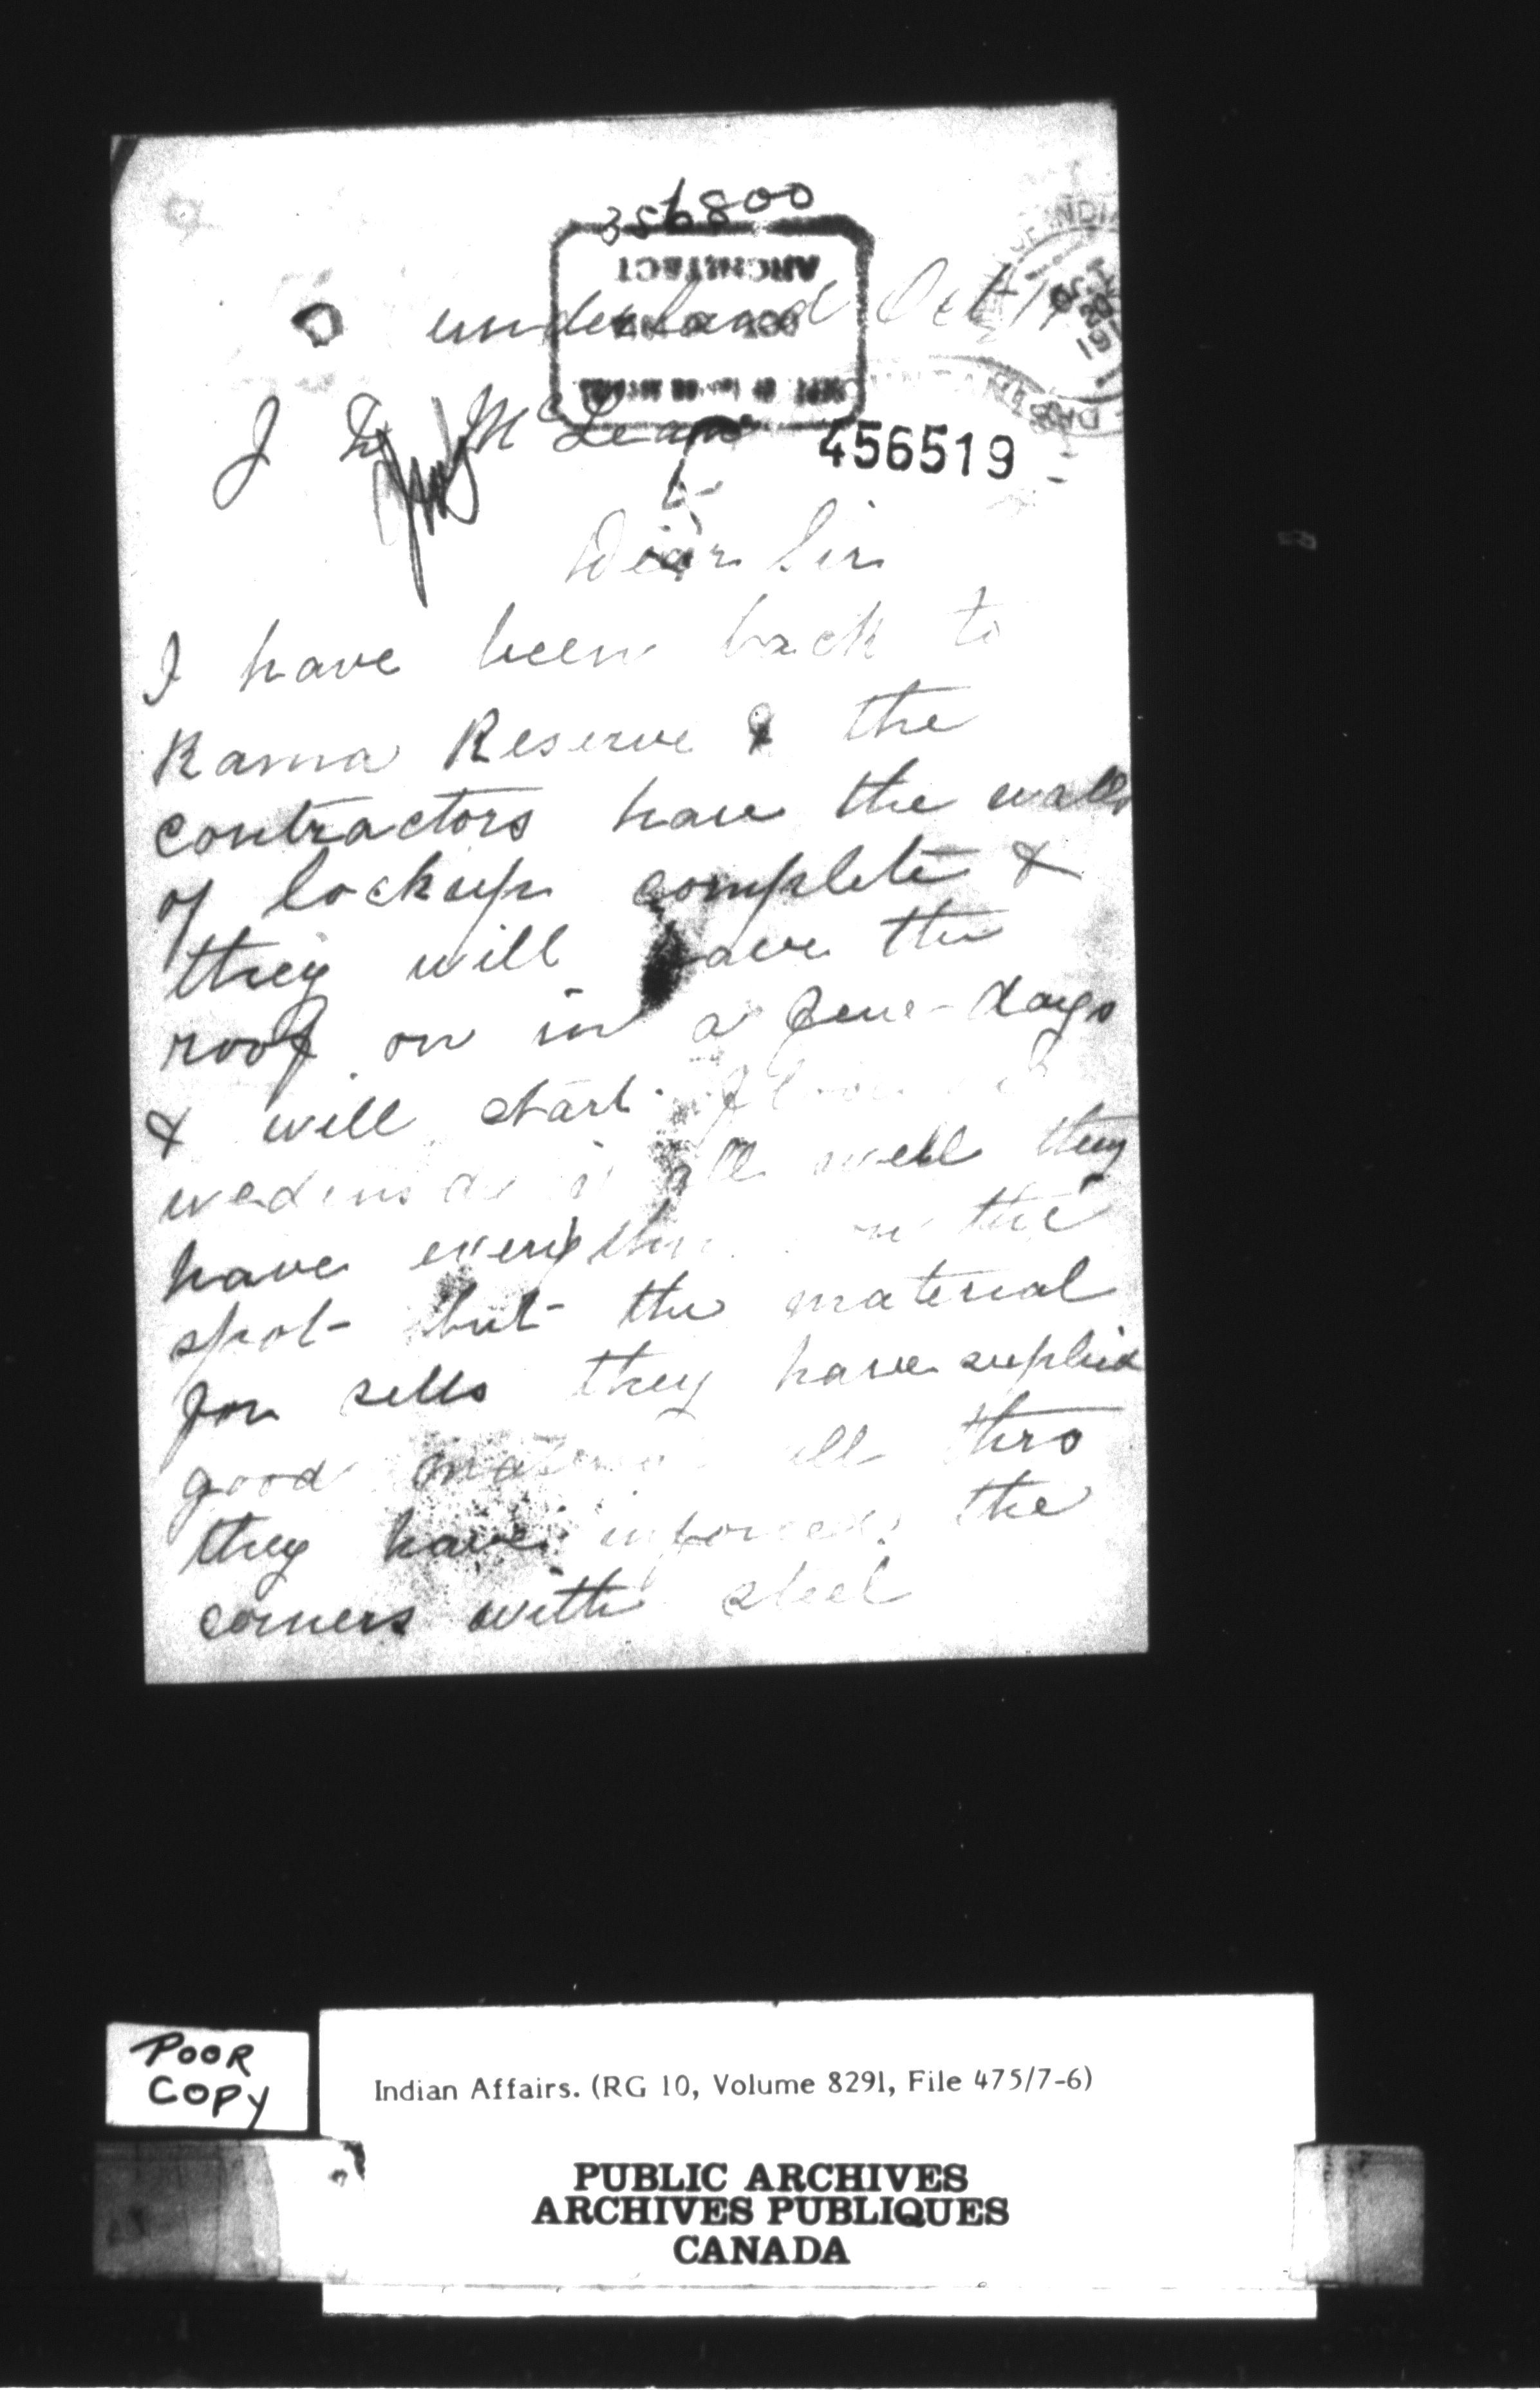 356800
ARCHITECT
underland Oct 19
J D McLean
456519
Dear Sir
I have been back to
Rama Reserve & the
contractors have the walls
of lockup complete &
they will have the
roof on in a few days
& will start
all well they
have everything on the
spot but the material
for sells they have suplied
good material all thro
they have inforced the
corners with steel
POOR
COPY
Indian Affairs. (RG 10, Volume 8291, File 475/7-6)
PUBLIC ARCHIVES
ARCHIVES PUBLIQUES
CANADA